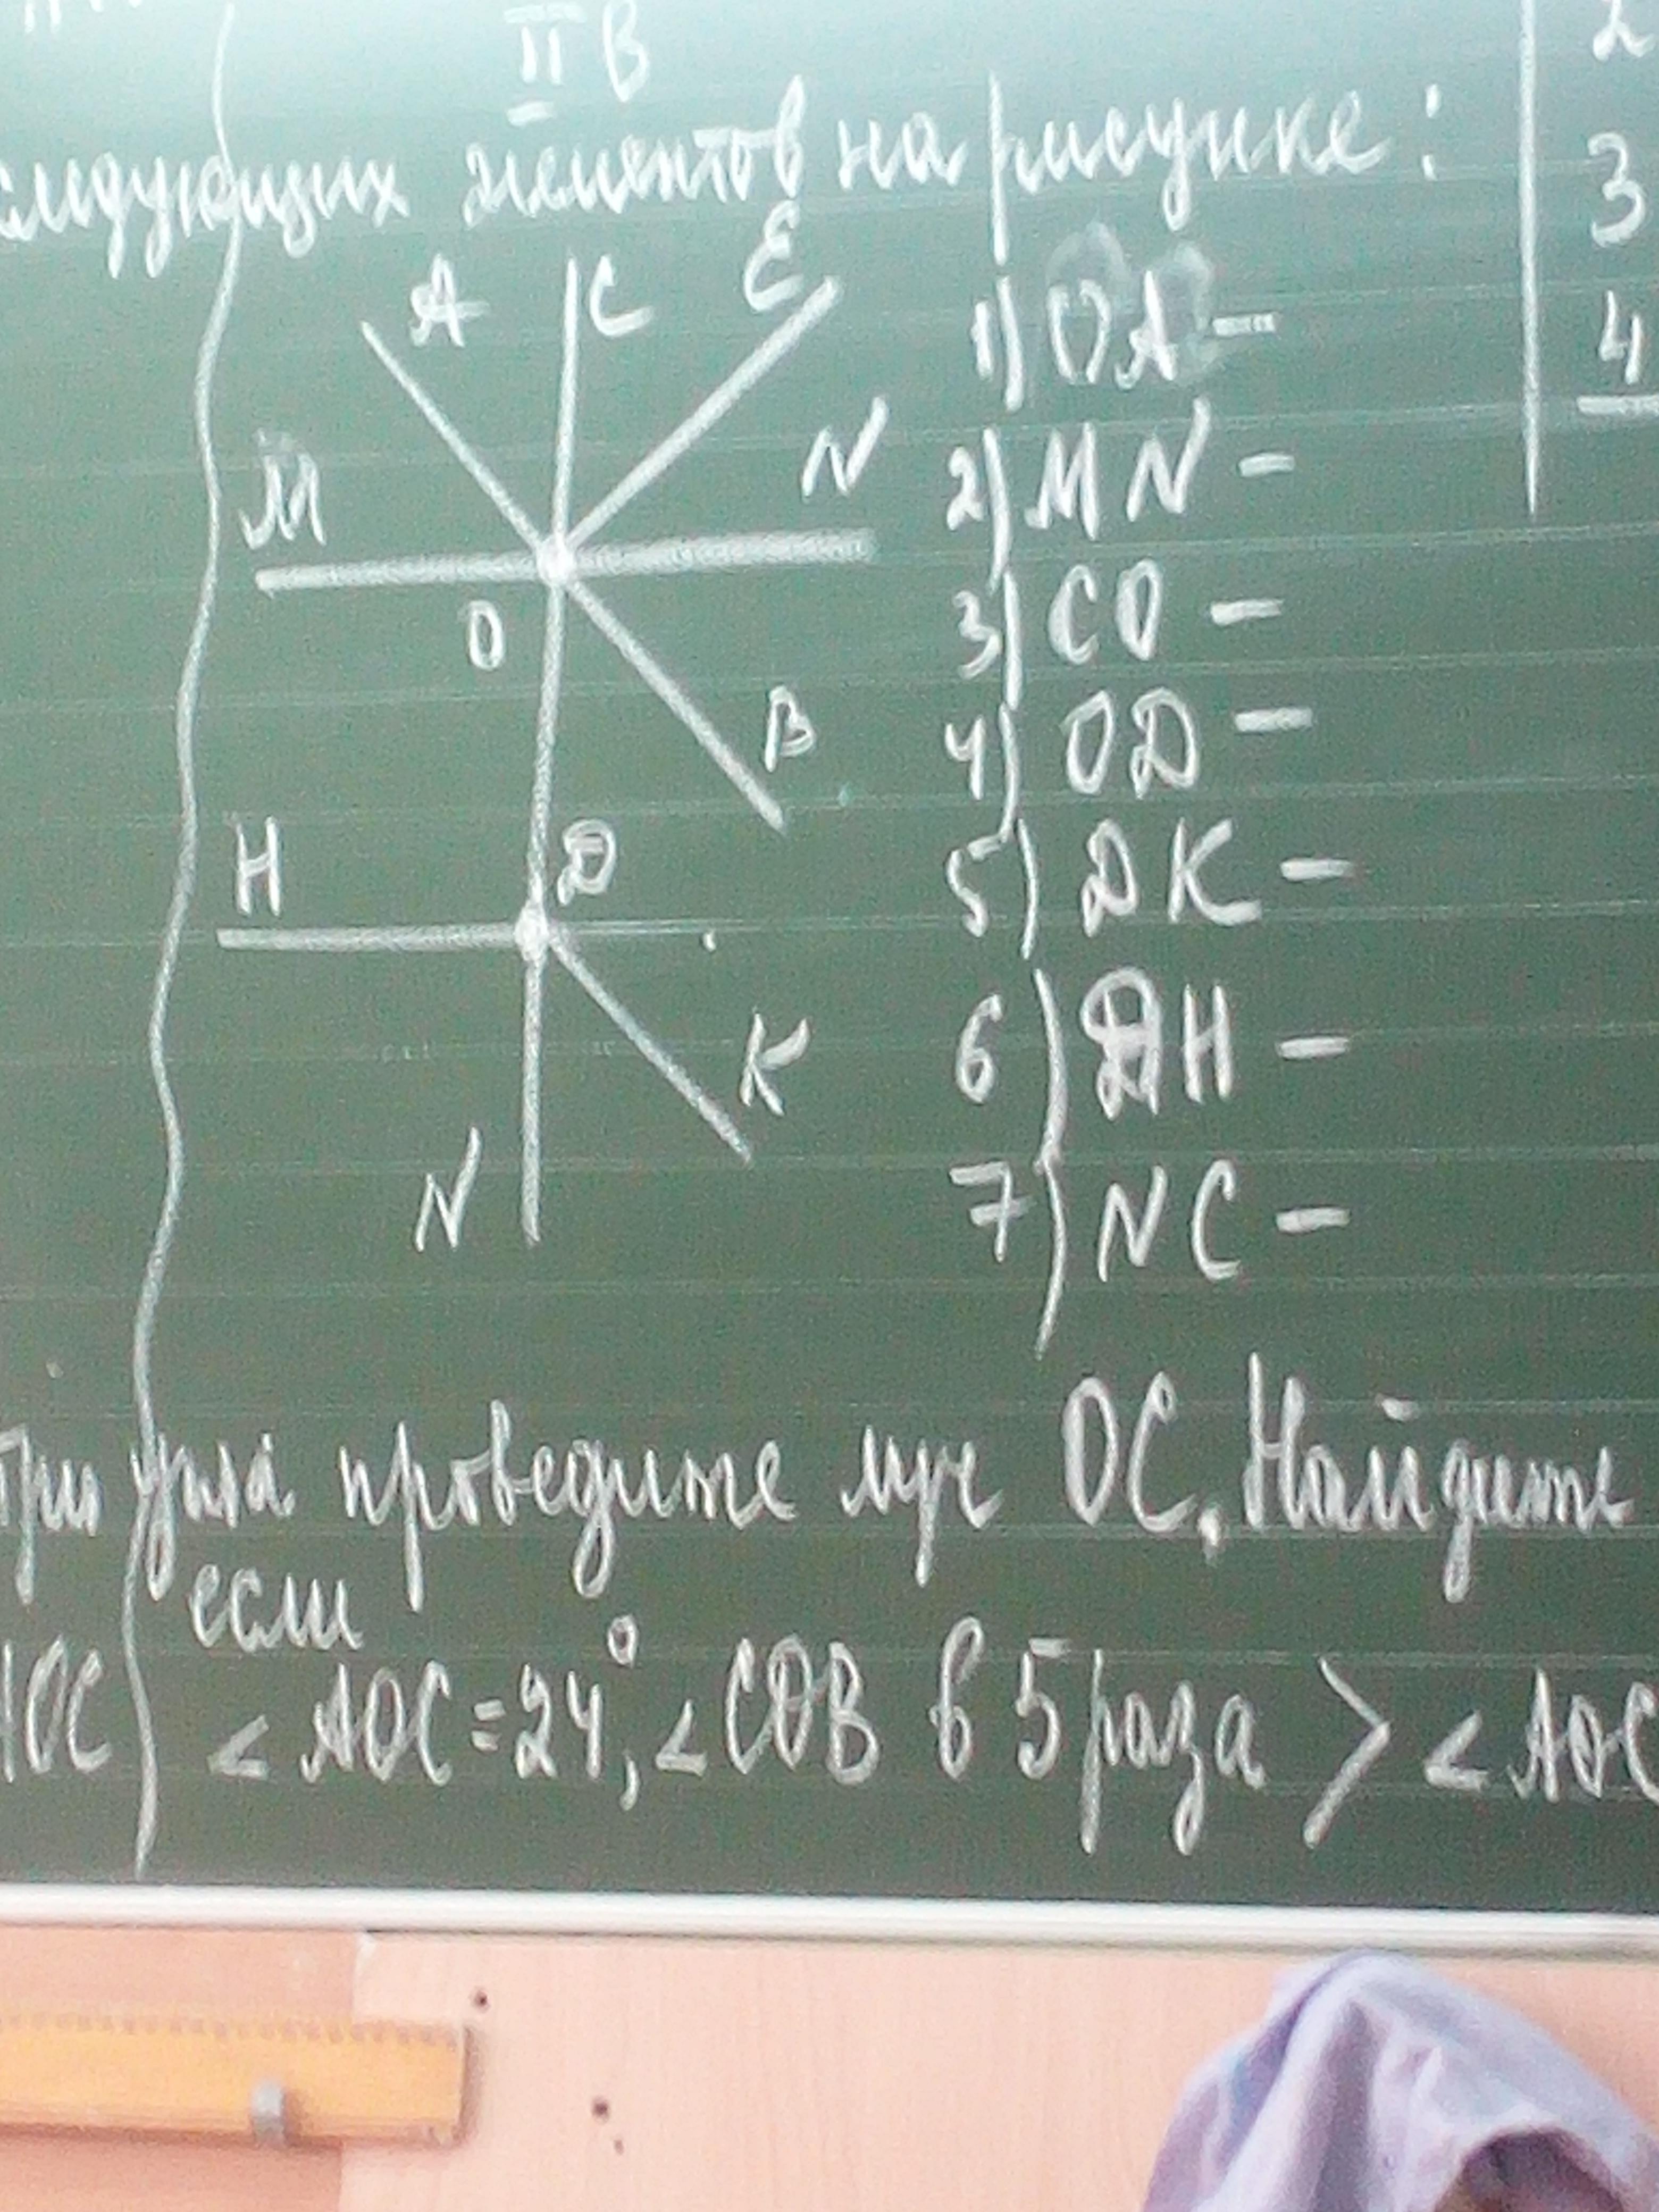 II В
следующих элементов на рисунке:
2
3
4
A
C
E
M
N
O
B
H
D
K
N
1) OA –
2) MN –
3) CO –
4) OD –
5) DK –
6) DH –
7) NC –
три угла проведите луч OC. Найдите
если
AOC
< AOC = 24°, < COB в 5 раза > < AOC